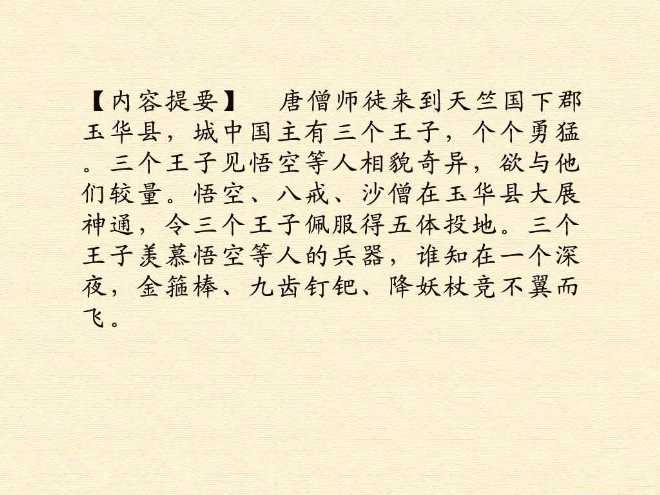 【内容提要】　唐僧师徒来到天竺国下郡
玉华县，城中国主有三个王子，个个勇猛
。三个王子见悟空等人相貌奇异，欲与他
们较量。悟空、八戒、沙僧在玉华县大展
神通，令三个王子佩服得五体投地。三个
王子羡慕悟空等人的兵器，谁知在一个深
夜，金箍棒、九齿钉钯、降妖杖竞不翼而
飞。